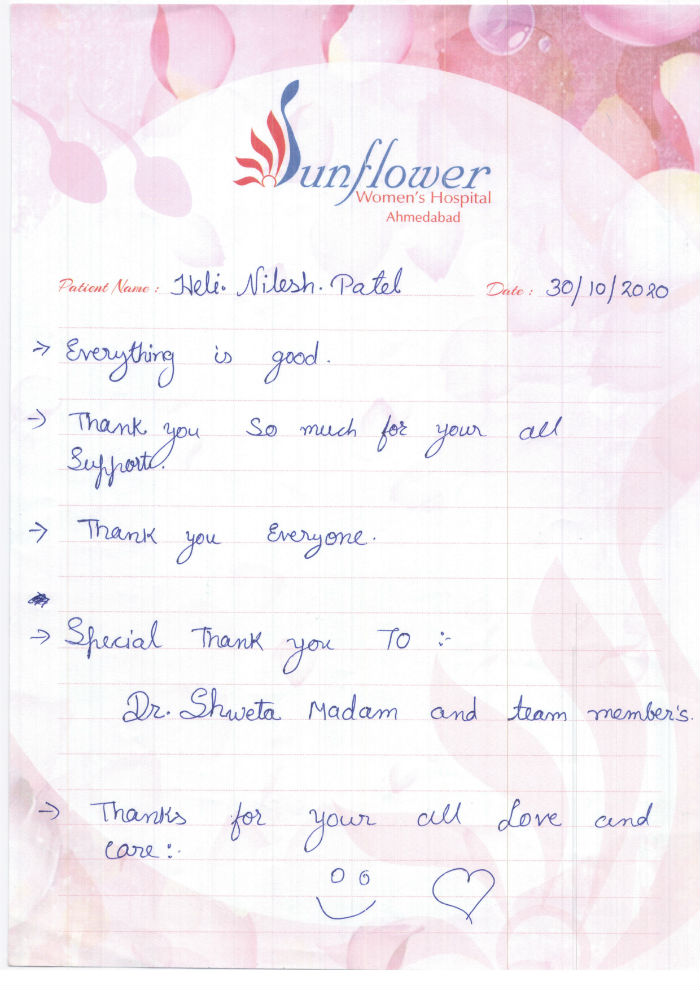 Sunflower
Women's Hospital
Ahmedabad
Patient Name : Heli. Nilesh. Patel Date : 30/10/2020
→ Everything is good.
→ Thank you So much for your all
Support.
→ Thank you Everyone.
→ Special Thank you TO :-
Dr. Shweta Madam and team member's.
→ Thanks for your all Love and
care :-